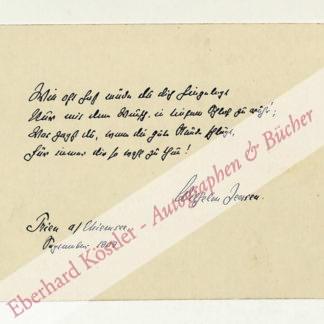 Wie oft hast müde du dich hingelegt
Nur mit dem Wunsch, in tiefem Schlaf zu ruh'n!
Was zagst du, wenn die gute Stunde schlägt,
Für immer dir so wohl zu thun!
Wilhelm Jensen.
Prien a/Chiemsee
Eberhard Köstler - Autographen & Bücher